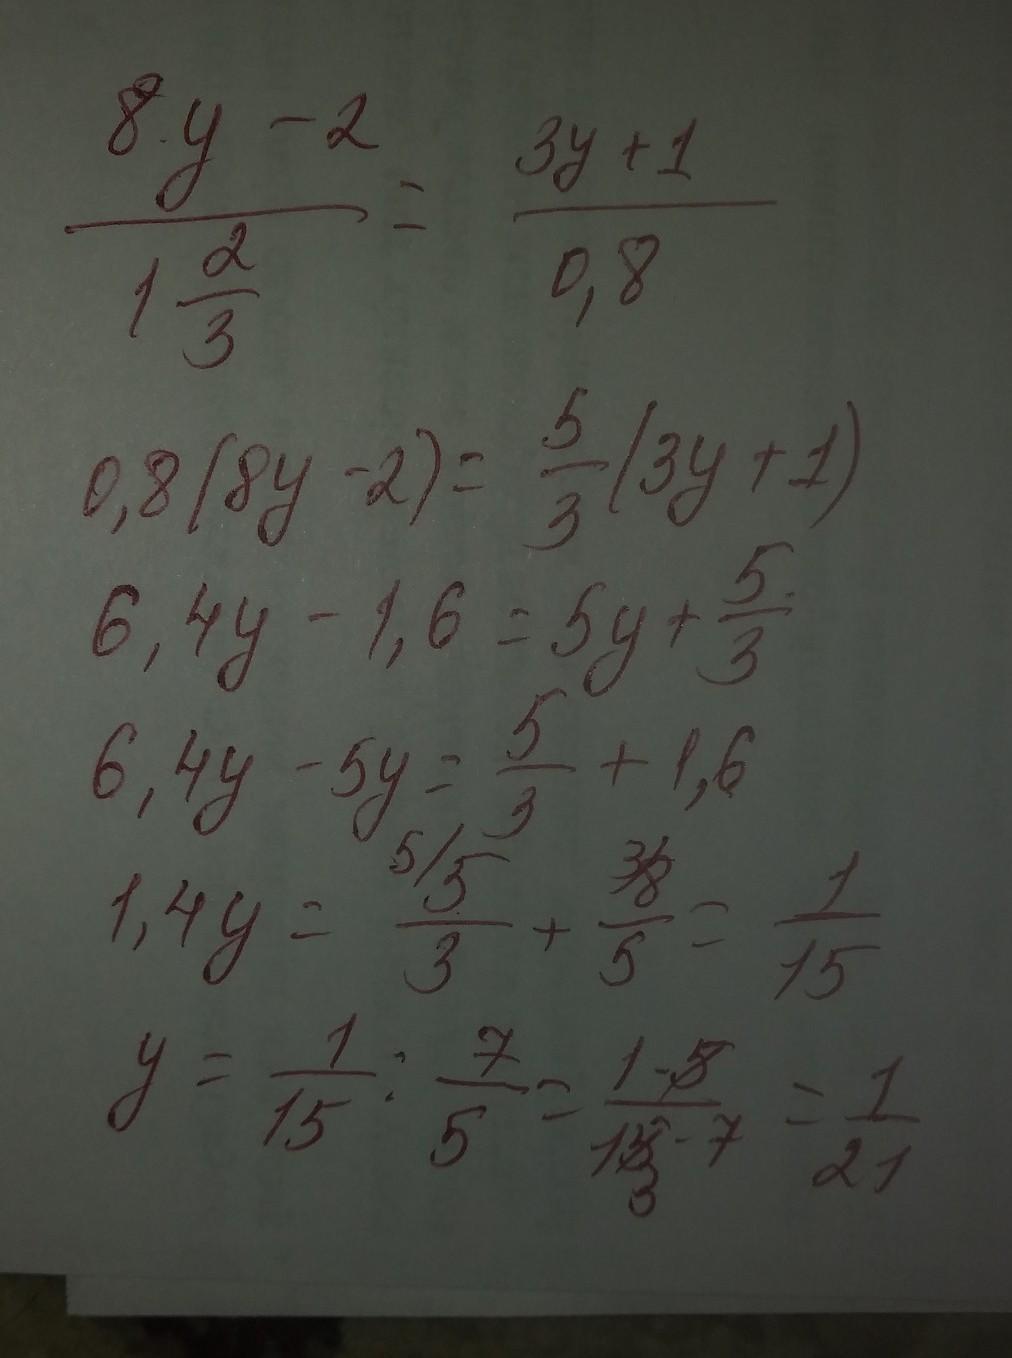 8·y - 2 / 1 2/3 = 3y + 1 / 0,8
0,8(8y - 2) = 5/3 (3y + 1)
6,4y - 1,6 = 5y + 5/3
6,4y - 5y = 5/3 + 1,6
1,4y = 5/ 5/3 + 3/ 8/5 = 1/15
y = 1/15 : 7/5 = 1·5 / 15·7 3 = 1/21